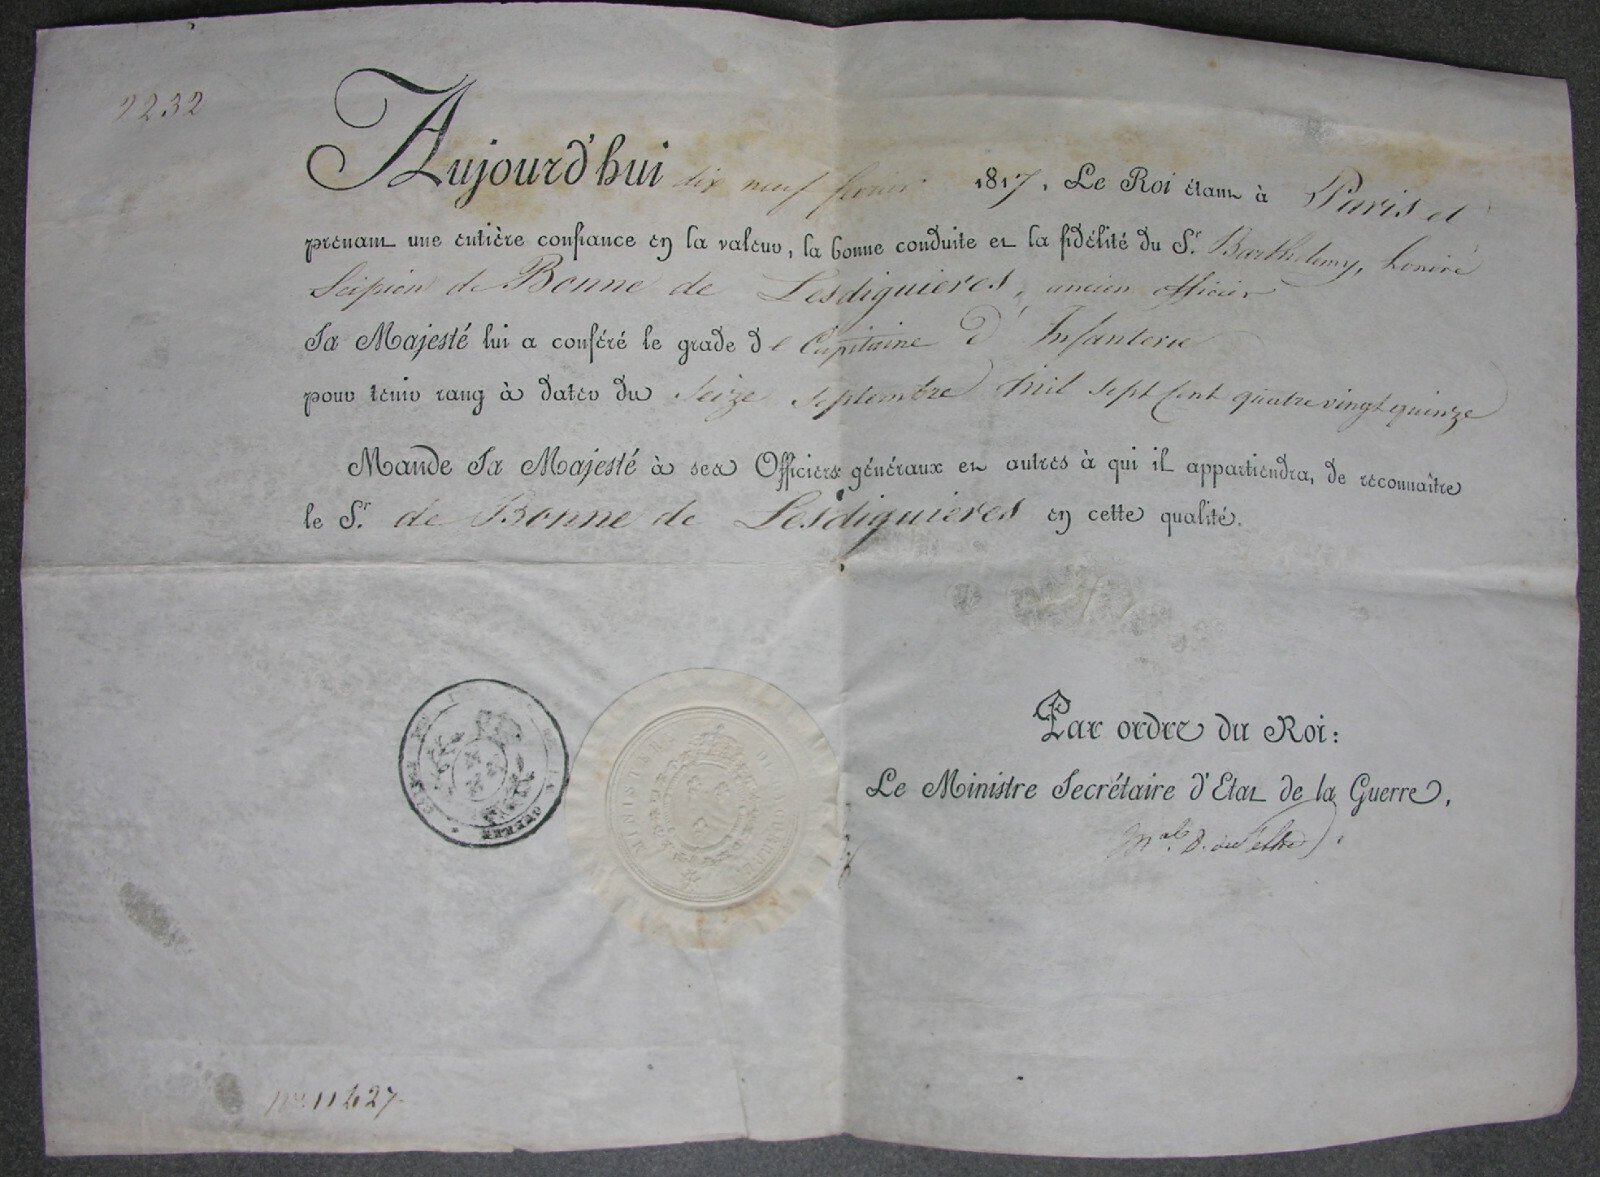 2232
Aujourd'hui dix neuf 1817. Le Roi étant à Paris et
prenant une entière confiance en la valeur, la bonne conduite et la fidélité du S.r Barthelemy, honoré
Scipion de Bonne de Lesdiguieres, ancien officier
Sa Majesté lui a conféré le grade de Capitaine d'Infanterie
pour tenir rang à dater du Seize Septembre mil sept cent quatre vingt quinze
Mande Sa Majesté à ses Officiers généraux et autres à qui il appartiendra, de reconnaître
le S.r de Bonne de Lesdiguieres en cette qualité.
MINISTERE DE GUERRE
Par ordre du Roi:
Le Ministre Secrétaire d'Etat de la Guerre,
M.al D. de feltre
n.o 11427